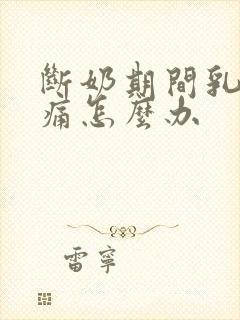 斷奶期間乳
痛怎麼办
雷寧